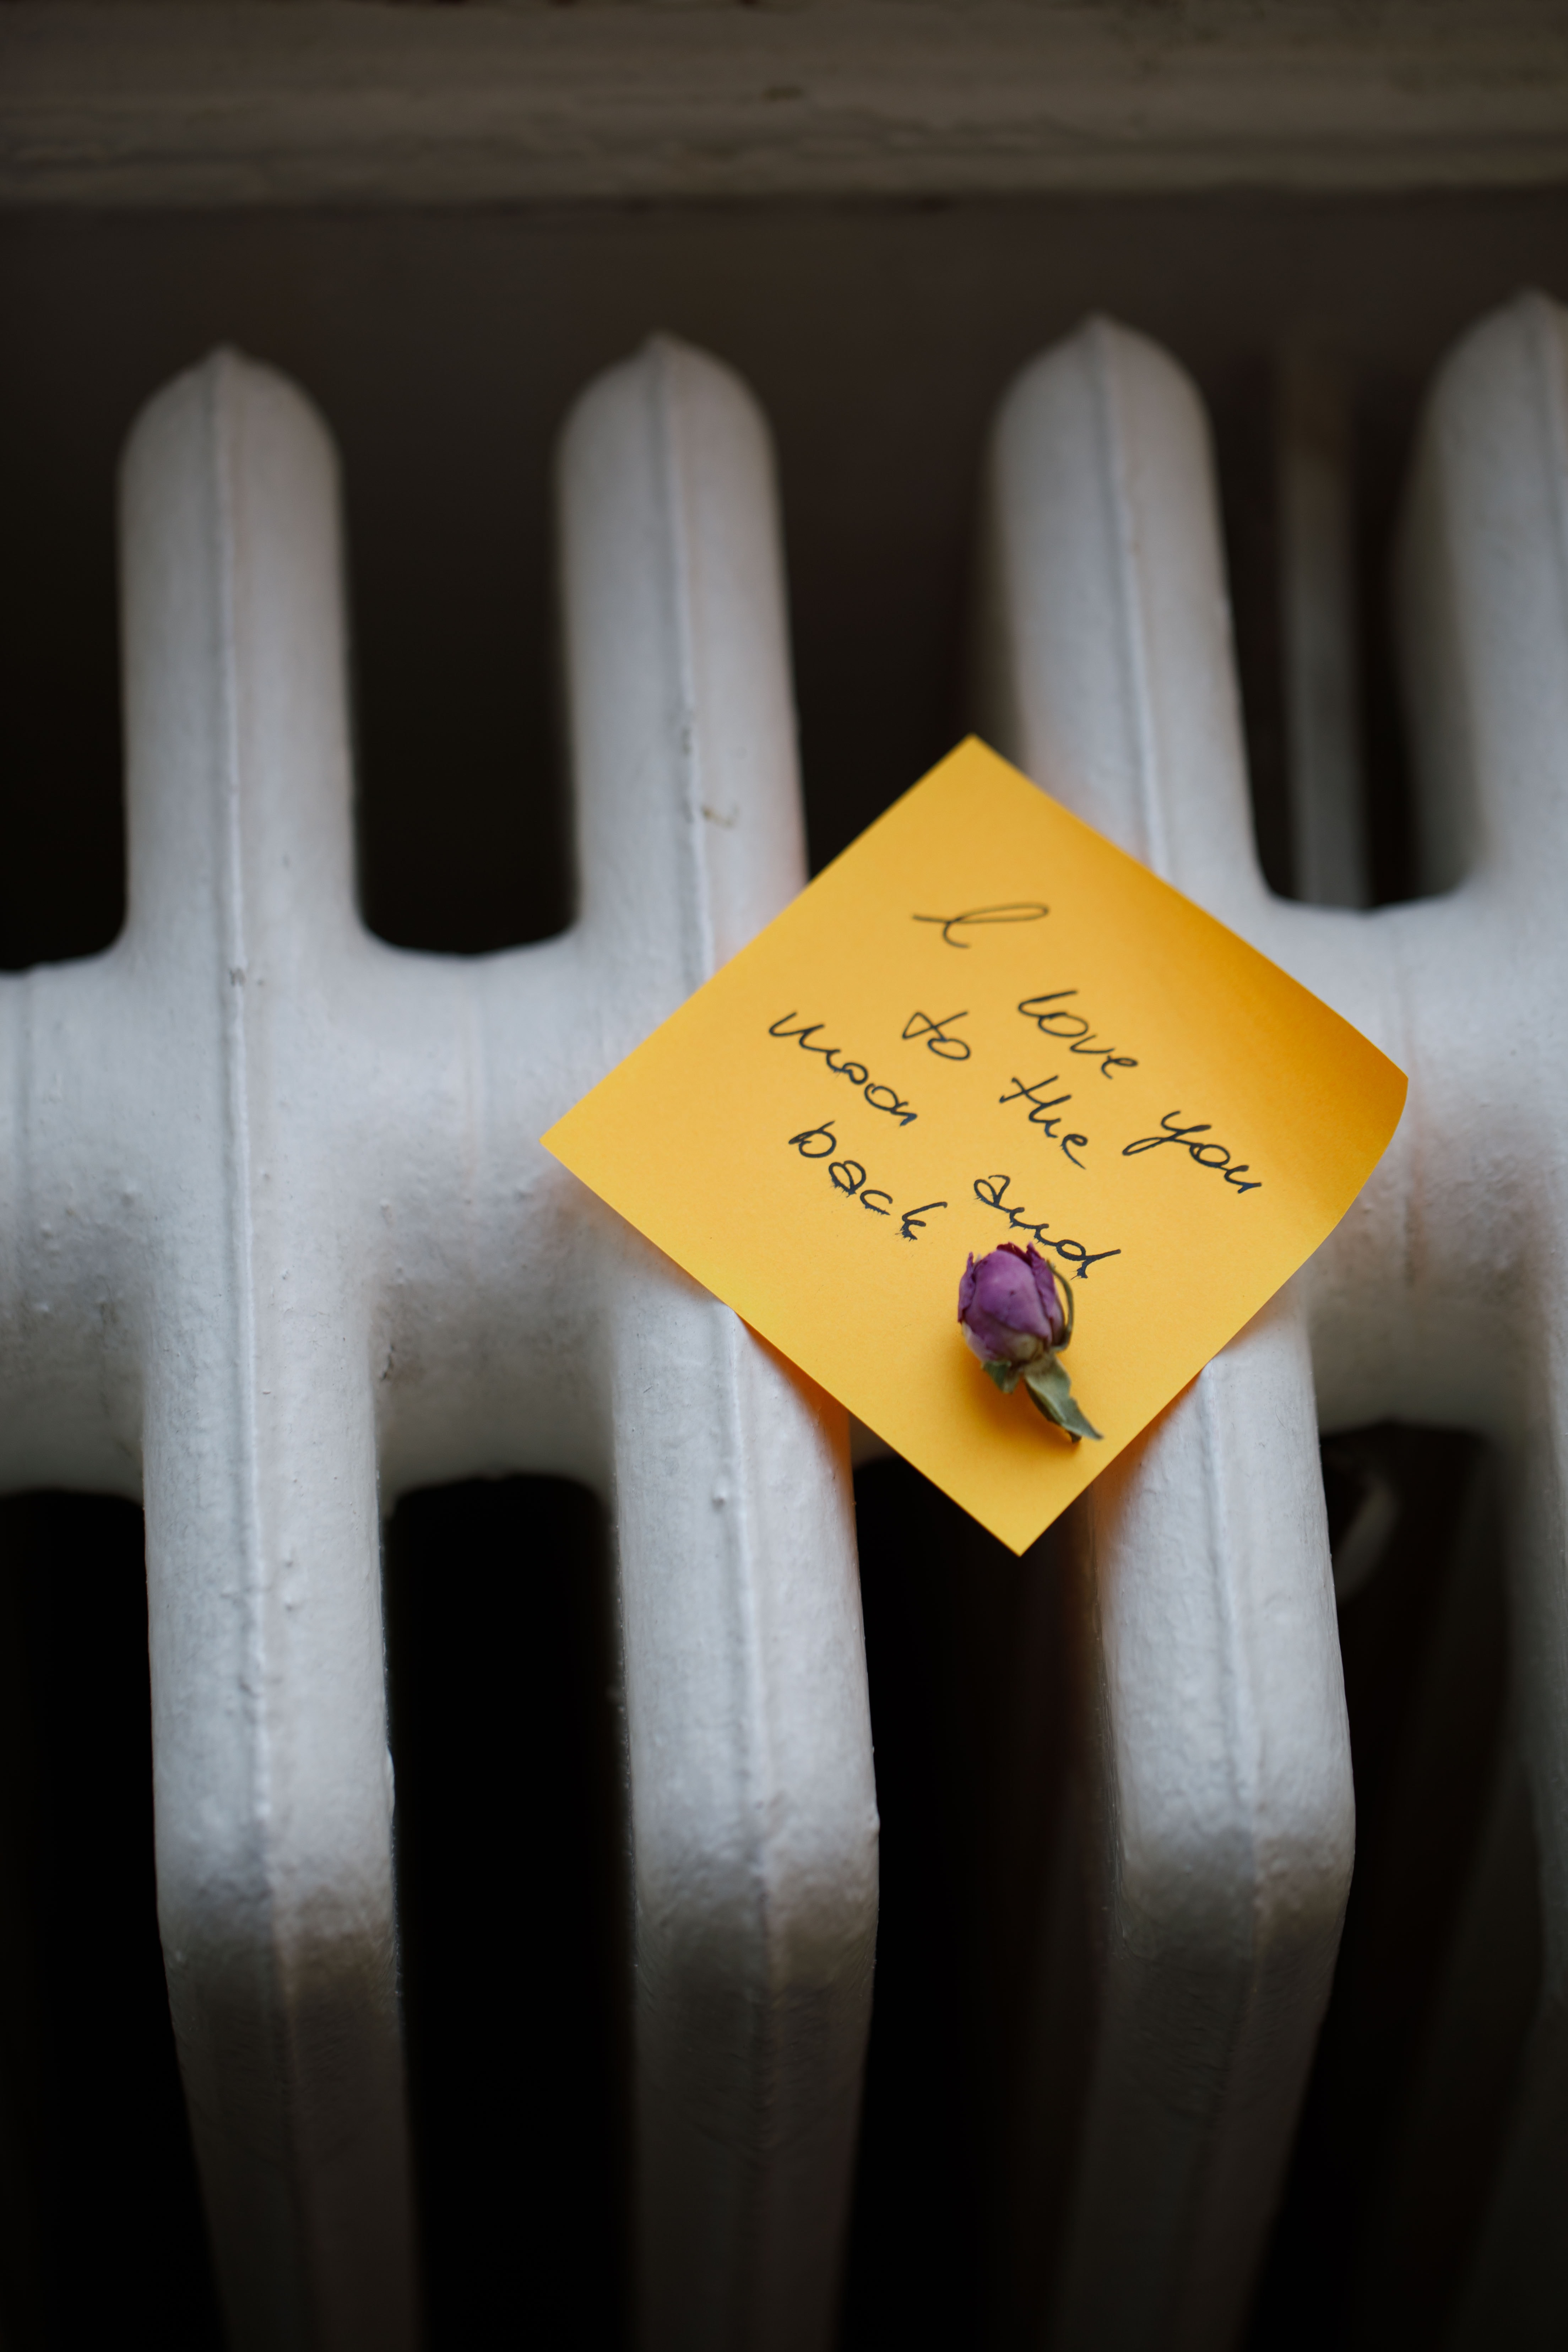 I love you
to the
moon and
back